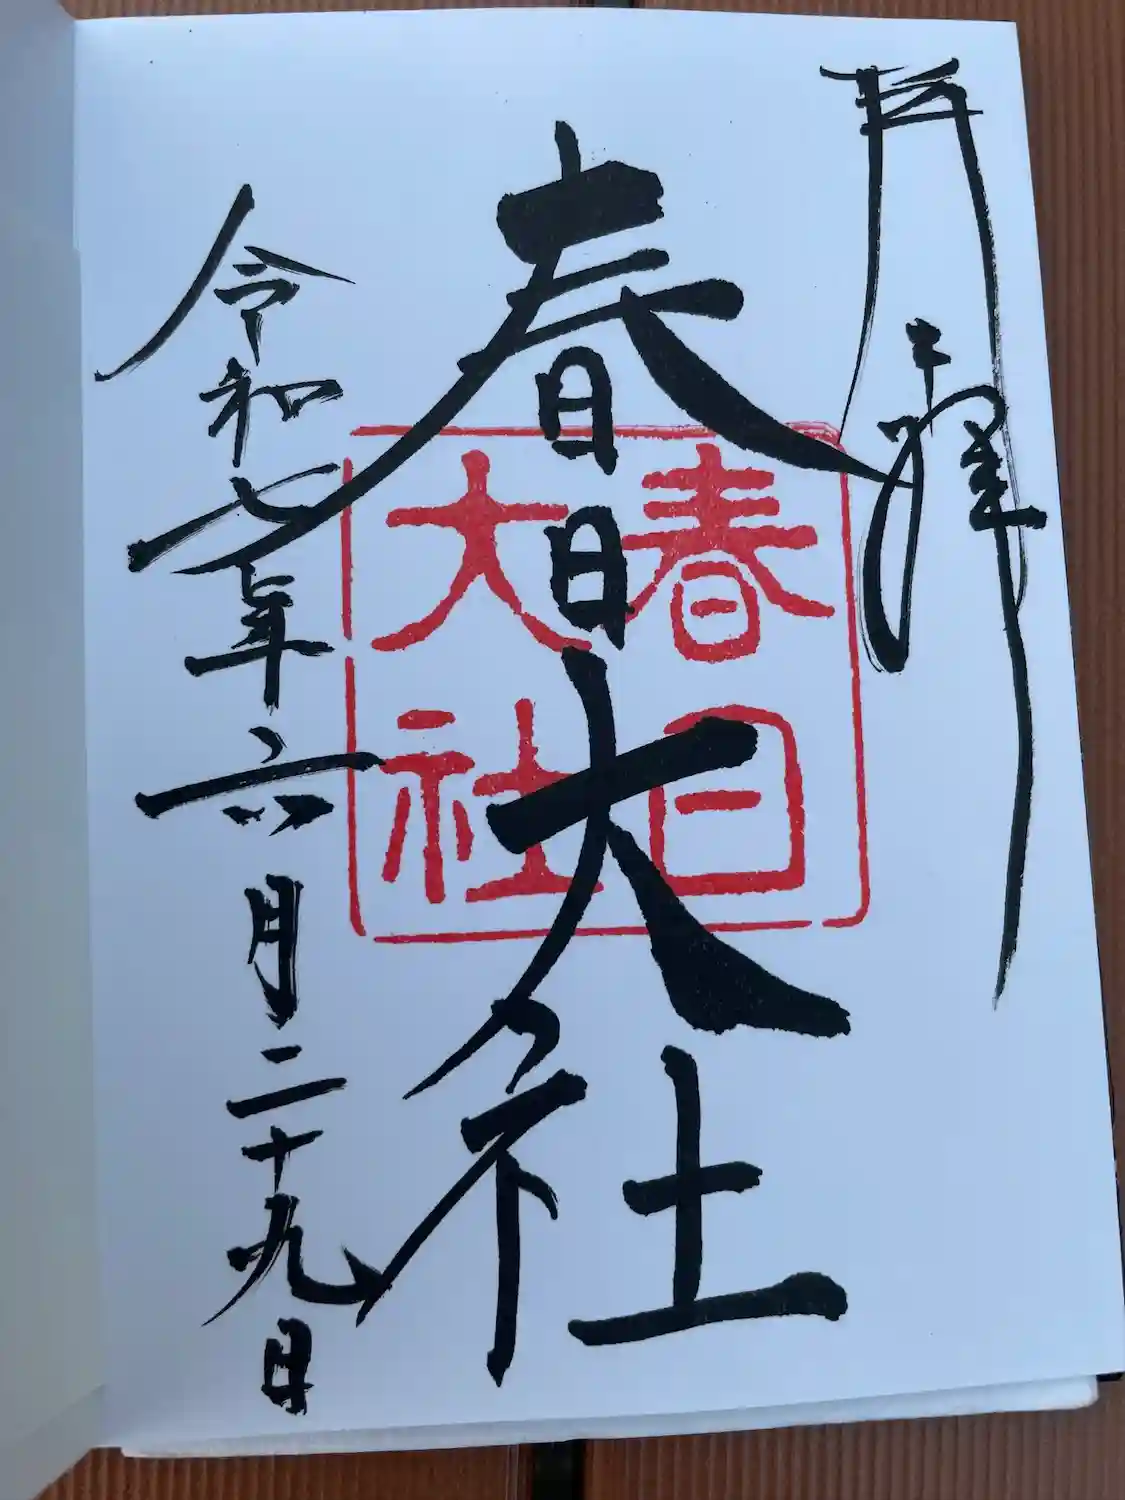 奉拝
春日大社
春日大社
令和七年六月二十九日